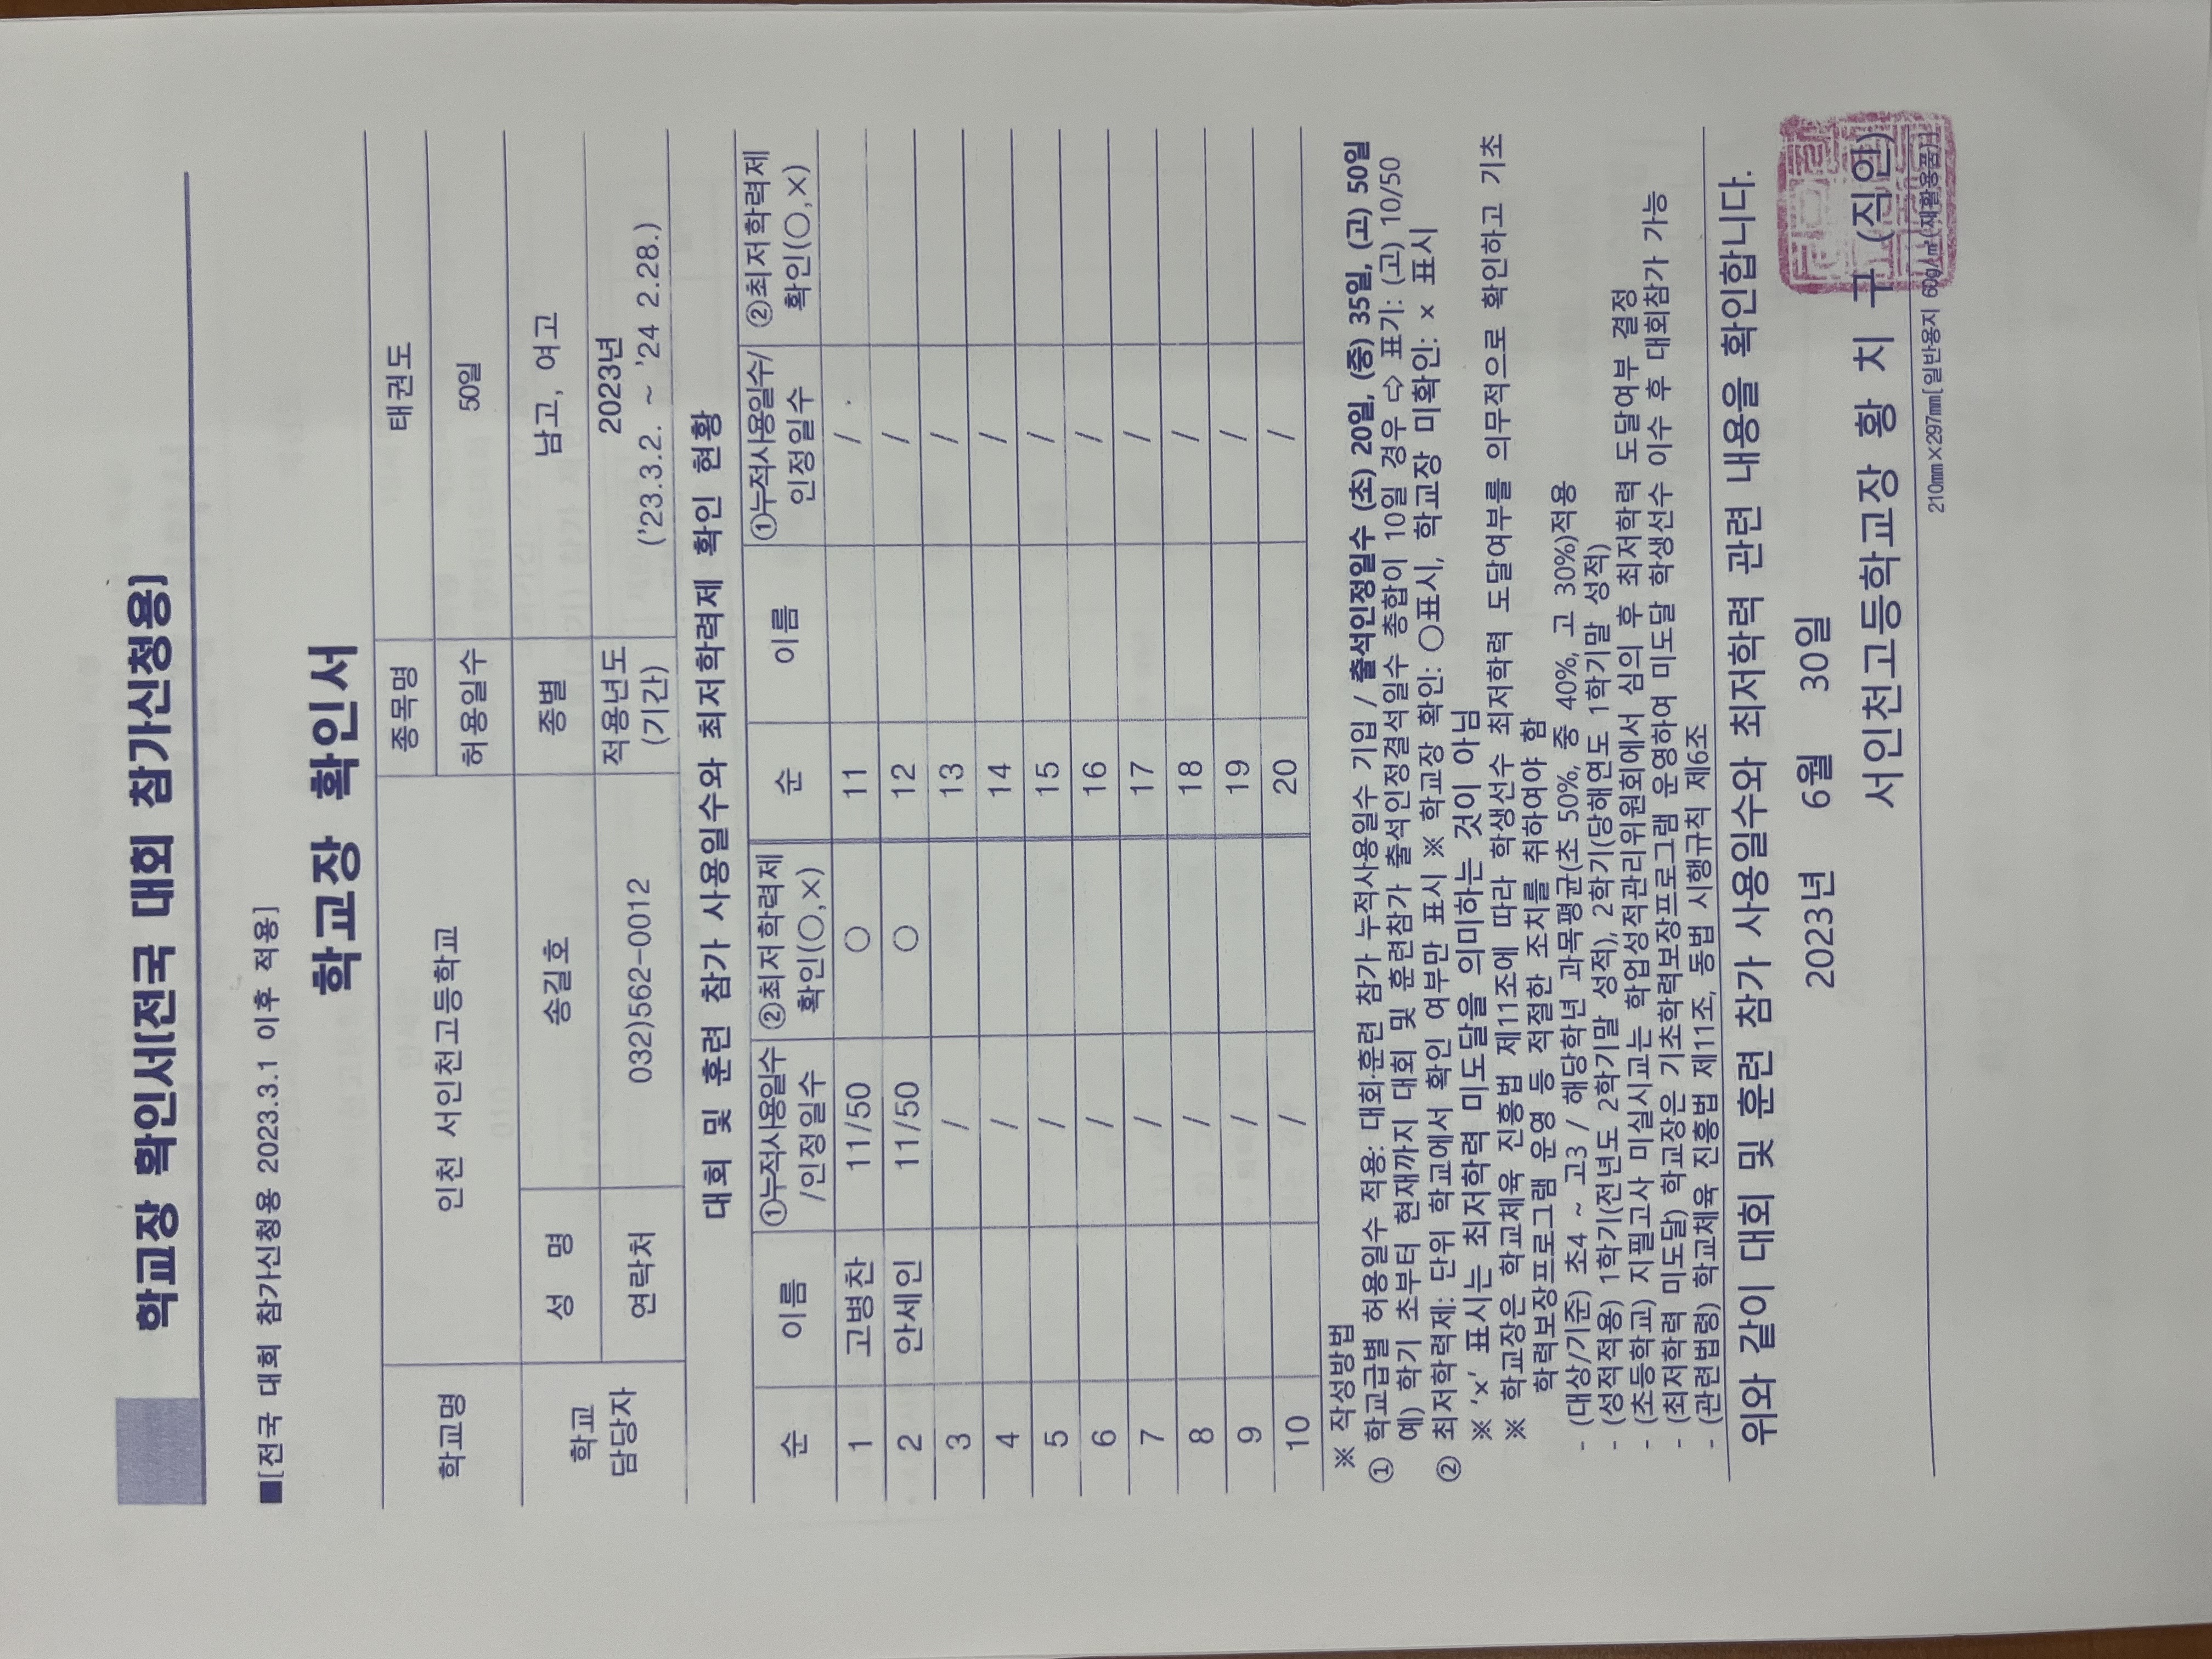 학교장 확인서[전국 대회 참가신청용]
■[전국 대회 참가신청용 2023.3.1 이후 적용]
학교장 확인서
학교명 인천 서인천고등학교 종목명 태권도
허용일수 50일
학교 담당자 성 명 송길호 종별 남고, 여고
연락처 032)562-0012 적용년도 (기간) 2023년 ('23.3.2. ~ '24 2.28.)
대회 및 훈련 참가 사용일수와 최저학력제 확인 현황
순 이름 ①누적사용일수/인정일수 ②최저학력제 확인(○,×) 순 이름 ①누적사용일수/인정일수 ②최저학력제 확인(○,×)
1 고병찬 11/50 ○ 11 /
2 안세인 11/50 ○ 12 /
3 / 13 /
4 / 14 /
5 / 15 /
6 / 16 /
7 / 17 /
8 / 18 /
9 / 19 /
10 / 20 /
※ 작성방법
① 학교급별 허용일수 적용: 대회·훈련 참가 누적사용일수 기입 / 출석인정일수 (초) 20일, (중) 35일, (고) 50일
예) 학기 초부터 현재까지 대회 및 훈련참가 출석인정결석일수 총합이 10일 경우 ⇨ 표기: (고) 10/50
② 최저학력제: 단위 학교에서 확인 여부만 표시 ※ 학교장 확인: ○표시, 학교장 미확인: × 표시
※ '×' 표시는 최저학력 미도달을 의미하는 것이 아님
※ 학교장은 학교체육 진흥법 제11조에 따라 학생선수 최저학력 도달여부를 의무적으로 확인하고 기초
학력보장프로그램 운영 등 적절한 조치를 취하여야 함
- (대상/기준) 초4 ~ 고3 / 해당학년 과목평균(초 50%, 중 40%, 고 30%)적용
- (성적적용) 1학기(전년도 2학기말 성적), 2학기(당해연도 1학기말 성적)
- (초등학교) 지필고사 미실시교는 학업성적관리위원회에서 심의 후 최저학력 도달여부 결정
- (최저학력 미도달) 학교장은 기초학력보장프로그램 운영하여 미도달 학생선수 이수 후 대회참가 가능
- (관련법령) 학교체육 진흥법 제11조, 동법 시행규칙 제6조
위와 같이 대회 및 훈련 참가 사용일수와 최저학력 관련 내용을 확인합니다.
2023년 6월 30일
서인천고등학교장 황 치 구 (직인)
210㎜×297㎜[일반용지 60g/㎡(재활용품)]